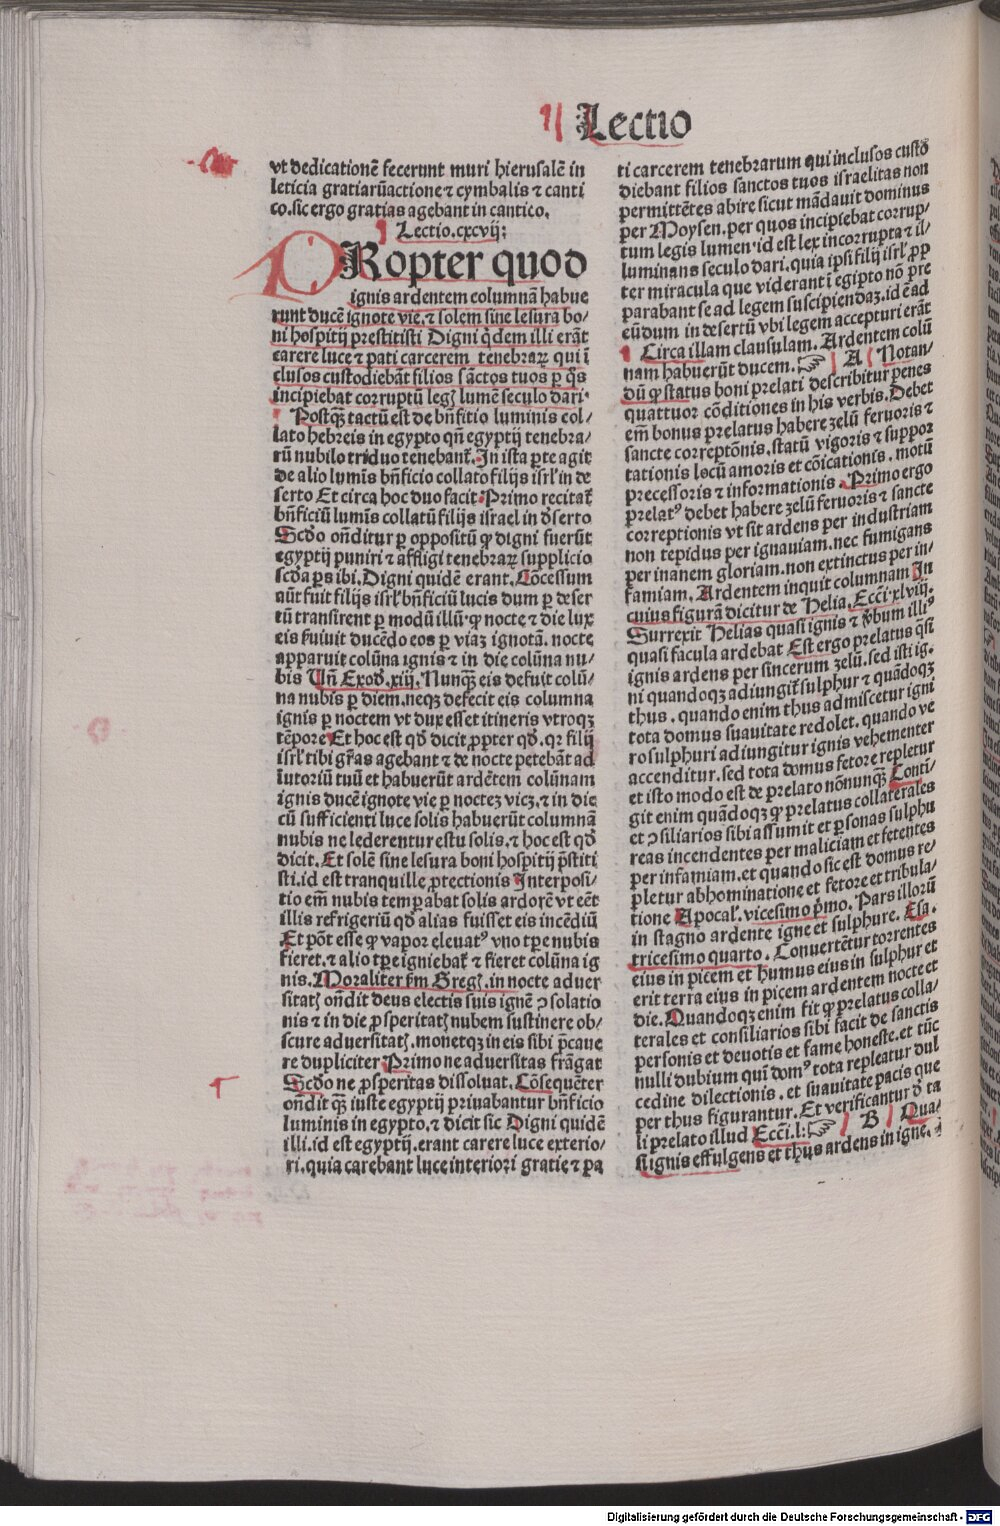 Lectio
vt dedicationē fecerunt muri hierusalē in
leticia gratiarūactione ⁊ cymbalis ⁊ canti
co. sic ergo gratias agebant in cantico.
Lectio.cxcvij:
PRopter quod
ignis ardentem columnā habue
runt ducē ignote vie. ⁊ solem sine lesura bo⸗
ni hospitij prestitisti Digni q̇dem illi erāt
carere luce ⁊ pati carcerem tenebraꝝ qui ī
clusos custodiebāt filios sāctos tuos ꝑ q̊s
incipiebat corruptū legꝭ lumē seculo dari.
Postqꝫ tactū est de bn̄fitio luminis col⸗
lato hebreis in egypto qn̄ egyptij tenebra⸗
rū nubilo triduo tenebant᷑. In ista ꝑte agit
de alio lumīs bn̄ficio collato filijs isrl̓ in de
serto Et circa hoc duo facit Primo recitat᷑
bn̄ficiū lumīs collatū filijs israel in d̓serto
Scd̓o on̄ditur ꝑ oppositū ꝙ digni fuerūt
egyptij puniri ⁊ affligi tenebraꝝ supplicio
scd̓a ꝑs ibi. Digni quidē erant. Cōcessum
aūt fuit filijs isrl̓ bn̄ficiū lucis dum ꝑ deser
tū transirent ꝑ modū illū. ꝙ nocte ⁊ die lux
eis fuiuit ducēdo eos ꝑ viaꝫ ignotā. nocte
apparuit colūna ignis ⁊ in die colūna nu⸗
bis Vn̄ Exod̓. xiij. Nunqꝫ eis defuit colū⸗
na nubis ꝑ diem. neqꝫ defecit eis columna
ignis ꝑ noctem vt dux esset itineris vtroqꝫ
tēpore Et hoc est qd̓ dicit ꝓpter qd̓. qꝛ filij
isrl̓ tibi gr̄as agebant ⁊ de nocte petebāt ad
iutoriū tuū et habuerūt ardētem colūnam
ignis ducē ignote vie ꝑ nocteꝫ vicꝫ. ⁊ in die
cū sufficienti luce solis habuerūt columnā
nubis ne lederentur estu solis. ⁊ hoc est qd̓
dicit. Et solē sine lesura boni hospitij p̄stiti
sti. id est tranquille ꝓtectionis Interposi⸗
tio em̄ nubis temꝑabat solis ardorē vt eēt
illis refrigeriū qd̓ alias fuisset eis incēdiū
Et pōt esse ꝙ vapor eleuatꝰ vno tꝑe nubis
fieret. ⁊ alio tꝑe igniebat᷑ ⁊ fieret colūna ig
nis. Moraliter ẜm Gregꝭ. in nocte aduer
sitatꝭ on̄dit deus electis suis ignē ↄsolatio
nis ⁊ in die ꝓsperitatꝭ nubem sustinere ob⸗
scure aduersitatꝭ. monetqꝫ in eis sibi p̄caue
re dupliciter Primo ne aduersitas frāgat
Scd̓o ne ꝓsperitas dissoluat. Cōsequēter
on̄dit qꝫ iuste egyptij priuabantur bn̄ficio
luminis in egypto. ⁊ dicit sic Digni quidē
illi. id est egyptij. erant carere luce exterio⸗
ri. quia carebant luce interiori gratie ⁊ pa
ti carcerem tenebrarum qui inclusos custo
diebant filios sanctos tuos israelitas non
permittētes abire sicut mādauit dominus
per Moysen. per quos incipiebat corrup⸗
tum legis lumen id est lex incorrupta ⁊ il⸗
luminans seculo dari. quia ipsi filij isrl̓ ꝓp
ter miracula que viderant ī egipto nō pre
parabant se ad legem suscipiendaꝫ. id ē ad
eūdum in desertū vbi legem accepturi erāt
Circa illam clausulam. Ardentem colū
nam habuerūt ducem. ☞ A Notan⸗
dū ꝙ status boni prelati describitur penes
quattuor cōditiones in his verbis. Debet
em̄ bonus prelatus habere ꝫelū feruoris ⁊
sancte correptōnis. statū vigoris ⁊ suppor
tationis locū amoris et cōicationis. motū
precessoris ⁊ informationis. Primo ergo
prelatꝰ debet habere ꝫelū feruoris ⁊ sancte
correptionis vt sit ardens per industriam
non tepidus per ignauiam. nec fumigans
per inanem gloriam. non extinctus per in⸗
famiam. Ardentem inquit columnam In
cuius figurā dicitur de Helia. Ecc̄i. xlviij.
Surrexit Helias quasi ignis ⁊ v̓bum illiꝰ
quasi facula ardebat Est ergo prelatus q̄si
ignis ardens per sincerum ꝫelū. sed isti ig⸗
ni quandoqꝫ adiungit᷑ sulphur ⁊ quādoqꝫ
thus. quando enim thus admiscetur igni
tota domus suauitate redolet. quando ve
ro sulphuri adiungitur ignis vehementer
accenditur. sed tota domus fetore repletur
et isto modo est de prelato nōnunqꝫ Conti⸗
git enim quādoqꝫ ꝙ prelatus collaterales
et ↄsiliarios sibi assumit et ꝑsonas sulphu
reas incendentes per maliciam et fetentes
per infamiam. et quando sic est domus re⸗
pletur abhominatione et fetore et tribula⸗
tione Apocal̓. vicesimo p̄mo. Pars illorū
in stagno ardente igne et sulphure. Esa.
tricesimo quarto. Conuertētur torrentes
eius in picem et humus eius in sulphur et
erit terra eius in picem ardentem nocte et
die. Quandoqꝫ enim fit ꝙ prelatus colla⸗
terales et consiliarios sibi facit de sanctis
personis et deuotis et fame honeste. et tūc
nulli dubium quī domꝰ tota repleatur dul
cedine dilectionis. et suauitate pacis que
per thus figurantur. Et verificantur d̓ ta
li prelato illud Ecc̄i. l: ☞ B Qua⸗
si ignis effulgens et thus ardens in igne.
Digitalisierung gefördert durch die Deutsche Forschungsgemeinschaft - DFG